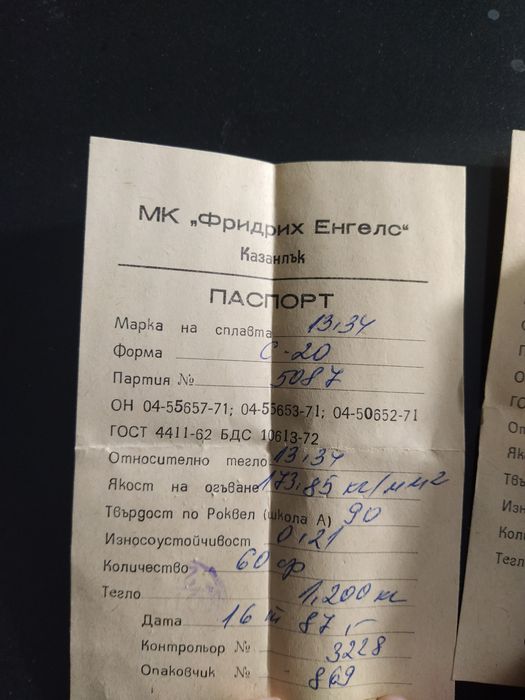 МК „Фридрих Енгелс“
Казанлък
ПАСПОРТ
Марка на сплавта 13,34
Форма С-20
Партия № 5087
ОН 04-55657-71; 04-55653-71; 04-50652-71
ГОСТ 4411-62 БДС 10613-72
Относително тегло 13,34
Якост на огъване 173,85 кг/мм2
Твърдост по Роквел (школа А) 90
Износоустойчивост 0,21
Количество 60 бр
Тегло 1,200 кг
Дата 16 III 87,-
Контрольор № 3228
Опаковчик № 869